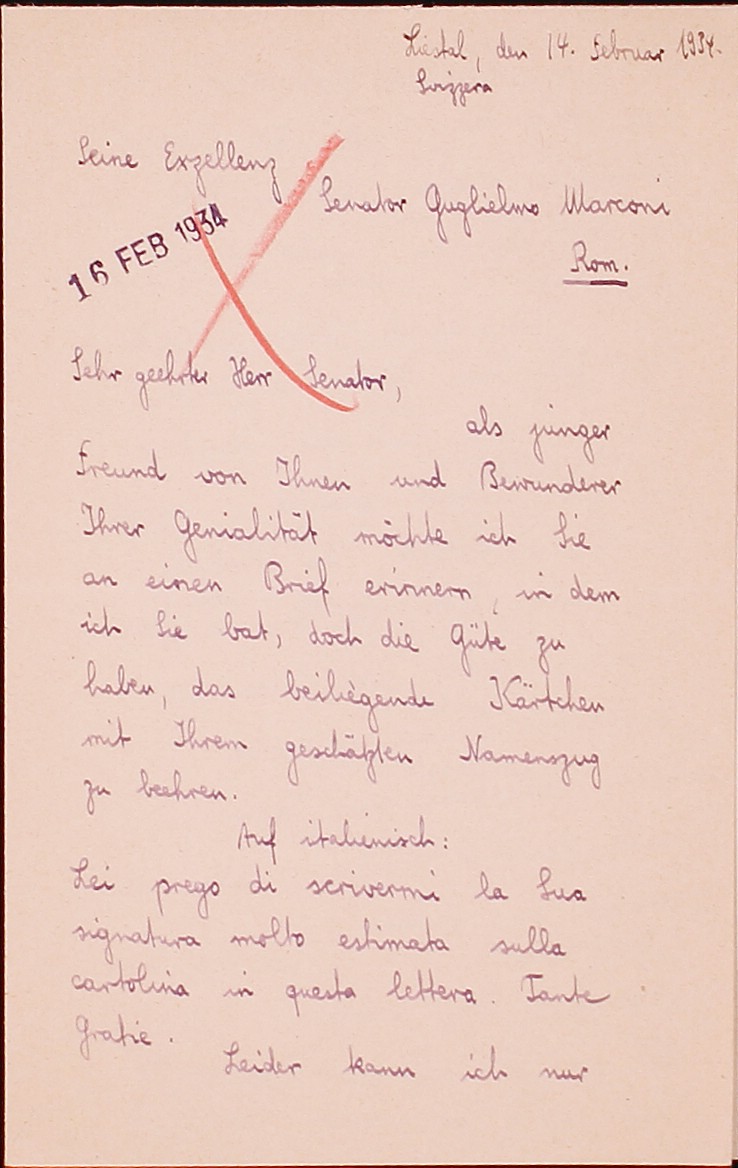 Liestal, den 14. Februar 1934.
Svizzera
Seine Exzellenz
Senator Guglielmo Marconi
Rom.
16 FEB 1934
Sehr geehrter Herr Senator,
als junger
Freund von Ihnen und Bewunderer
Ihrer Genialität möchte ich Sie
an einen Brief erinnern, in dem
ich Sie bat, doch die Güte zu
haben, das beiliegende Kärtchen
mit Ihrem geschätzten Namenszug
zu beehren.
Auf italienisch:
Lei prego di scrivermi la Sua
signatura molto estimata sulla
cartolina in questa lettera. Tante
Gratie.
Leider kann ich nur